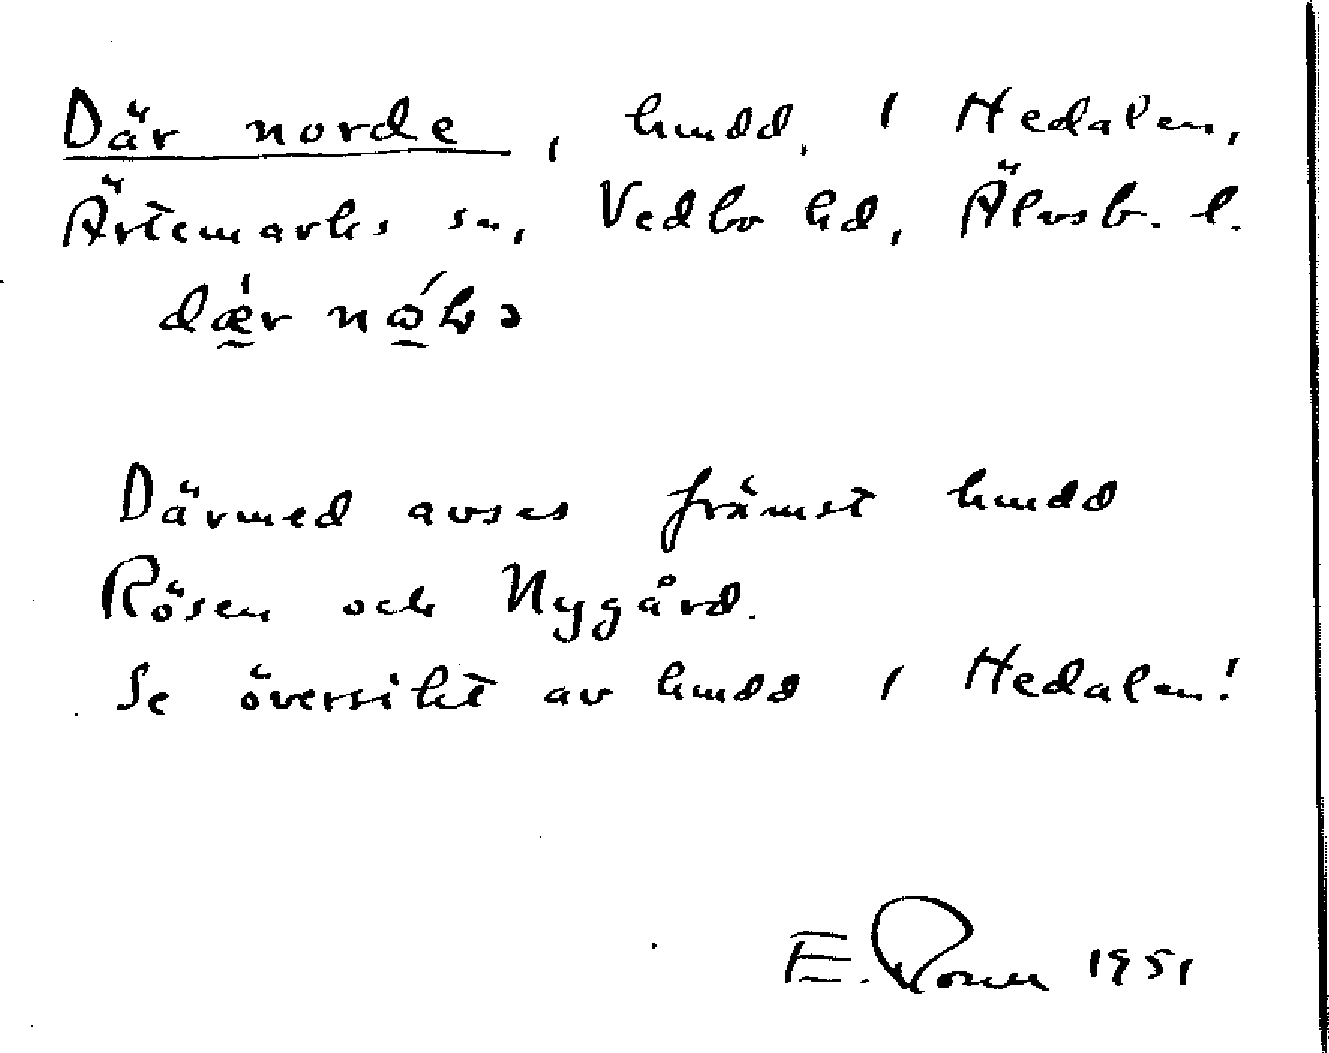 Där norde, hmdd. i Hedalen,
Ärtemarks sn, Vedbo hd, Älvsb. l.
Därmed avses främst hmdd
Rösen och Nygård.
Se översikt av hmdd i Hedalen!
E. 1951